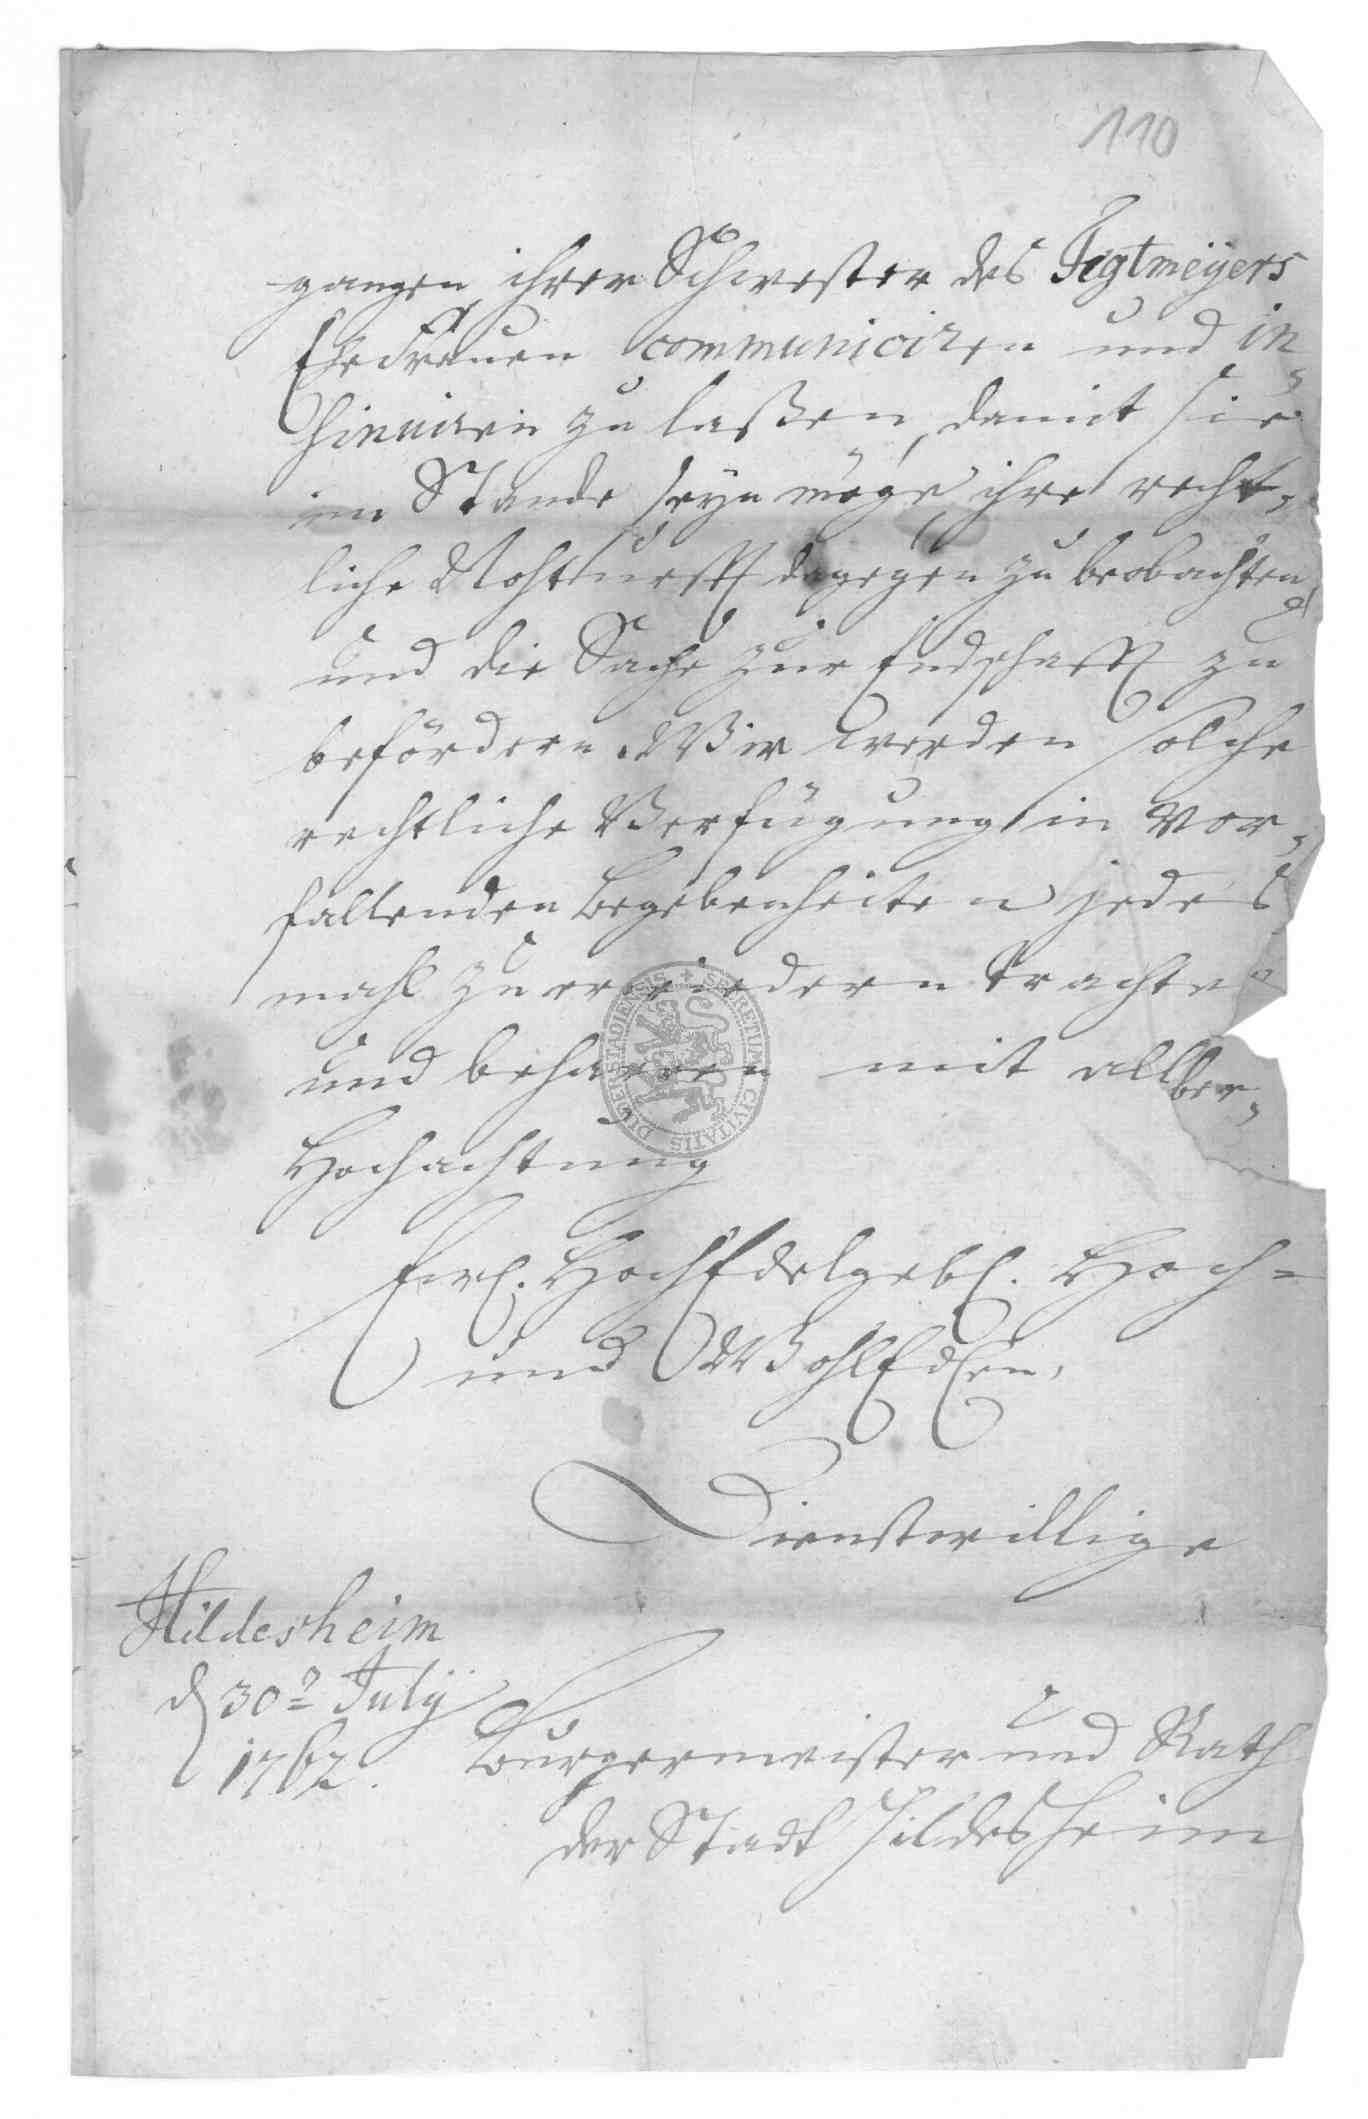 110
gangen ihrer Schwester des Tegtmeyers
EheFrauen communiciren und in
sinuiren zu laßen, damit sie
im Stande seyn möge ihre recht-
liche Nohtturfft dagegen zu beobachten
und die Sache zur Endschafft zu
befördern. Wir werden solche
rechtliche Verfügung in vor-
fallenden Begebenheiten jedes
mahl zu erwiedern trachten
und beharren mit aller
Hochachtung
Ewl. HochEdelgebl. Hoch=
und WohlEdlen,
Dienstwillige
Hildesheim
d 30ᵗ July
1762.
Burgermeister und Rath
der Stadt Hildesheim
SECRETUM CIVITATIS DUDERSTADIENSIS